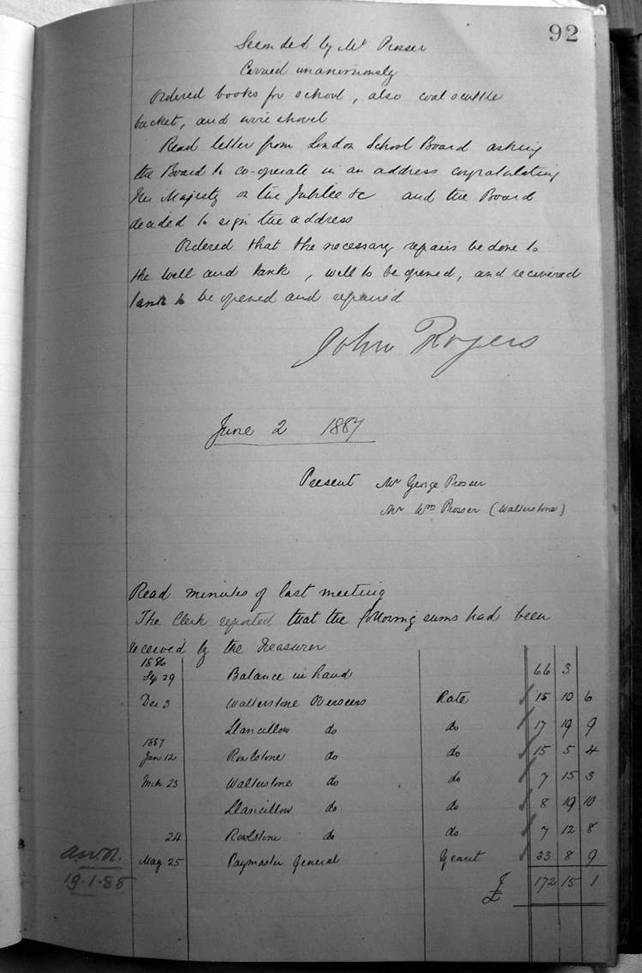 92
Seconded by Mr Prosser
Carried unanimously
Ordered books for school, also coal scuttle
bucket, and wire shovel
Read letter from London School Board asking
the Board to co-operate in an address congratulating
Her Majesty on the Jubilee &c and the Board
decided to sign the address
Ordered that the necessary repairs be done to
the well and tank, well to be opened, and recovered
tank to be opened and repaired
John Rogers
June 2 1887
Present Mr George Prosser
Mr Wm Prosser (Walterstone)
Read minutes of last meeting
The Clerk reported that the following sums had been
received by the Treasurer
1886
Sep 29 Balance in hand 66 3
Dec 3 Walterstone Overseers Rate 15 10 6
Llancillow do do 17 19 9
1887
Jan 12 Rowlstone do do 15 5 4
Mch 23 Walterstone do do 7 15 3
Llancillow do do 8 19 10
24 Rowlstone do do 7 12 8
May 25 Paymaster General Grant 33 8 9
£ 172 15 1
19.1.88